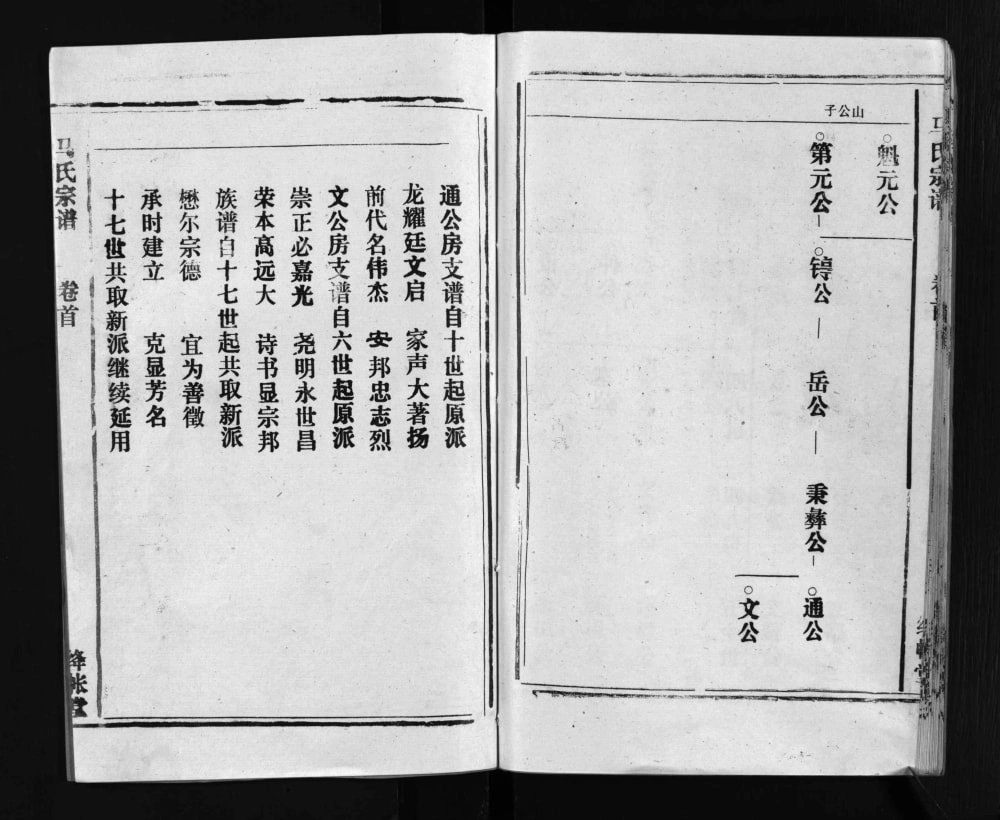 马氏宗谱
卷首
山公子
魁元公
第元公
镈公
岳公
秉彝公
通公
文公
通公房支谱自十世起原派
龙耀廷文启 家声大著扬
前代名伟杰 安邦忠志烈
文公房支谱自六世起原派
崇正必嘉光 尧明永世昌
荣本高远大 诗书显宗邦
族谱自十七世起共取新派
懋尔宗德 宜为善徵
承时建立 克显芳名
十七世共取新派继续延用
马氏宗谱
卷首
绛帐堂